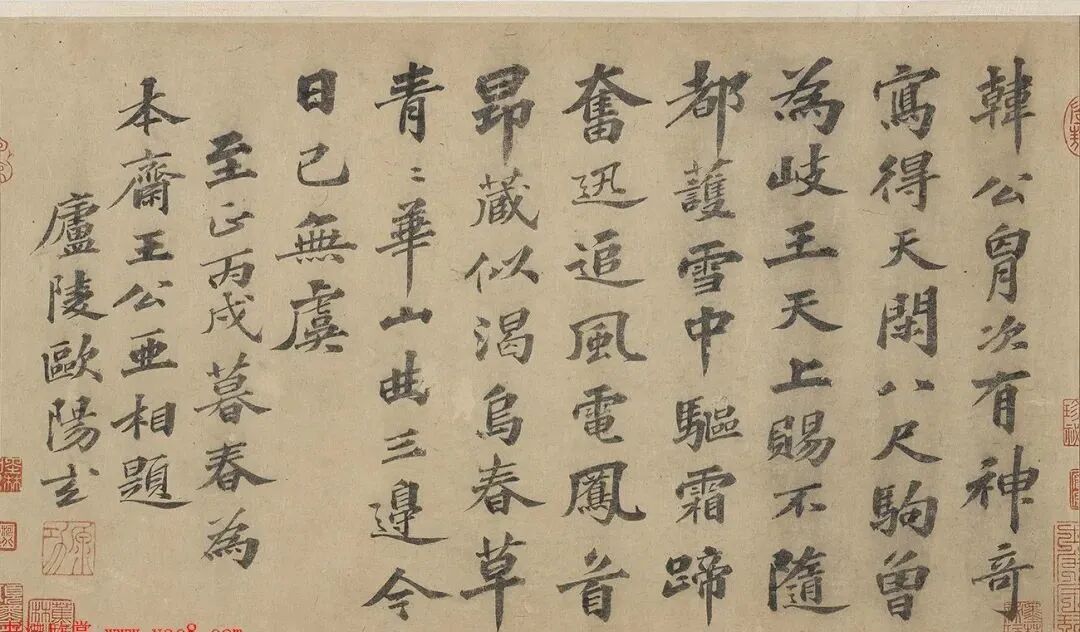 韓公胷次有神奇
寫得天閑八尺駒曾
為岐王天上賜不隨
都護雪中驅霜蹄
奮迅追風電鳳首
昂藏似渴烏春草
青〻華山曲三邊今
日已無虞
至正丙戌暮春為
本齋王公亞相題
廬陵歐陽玄
原功